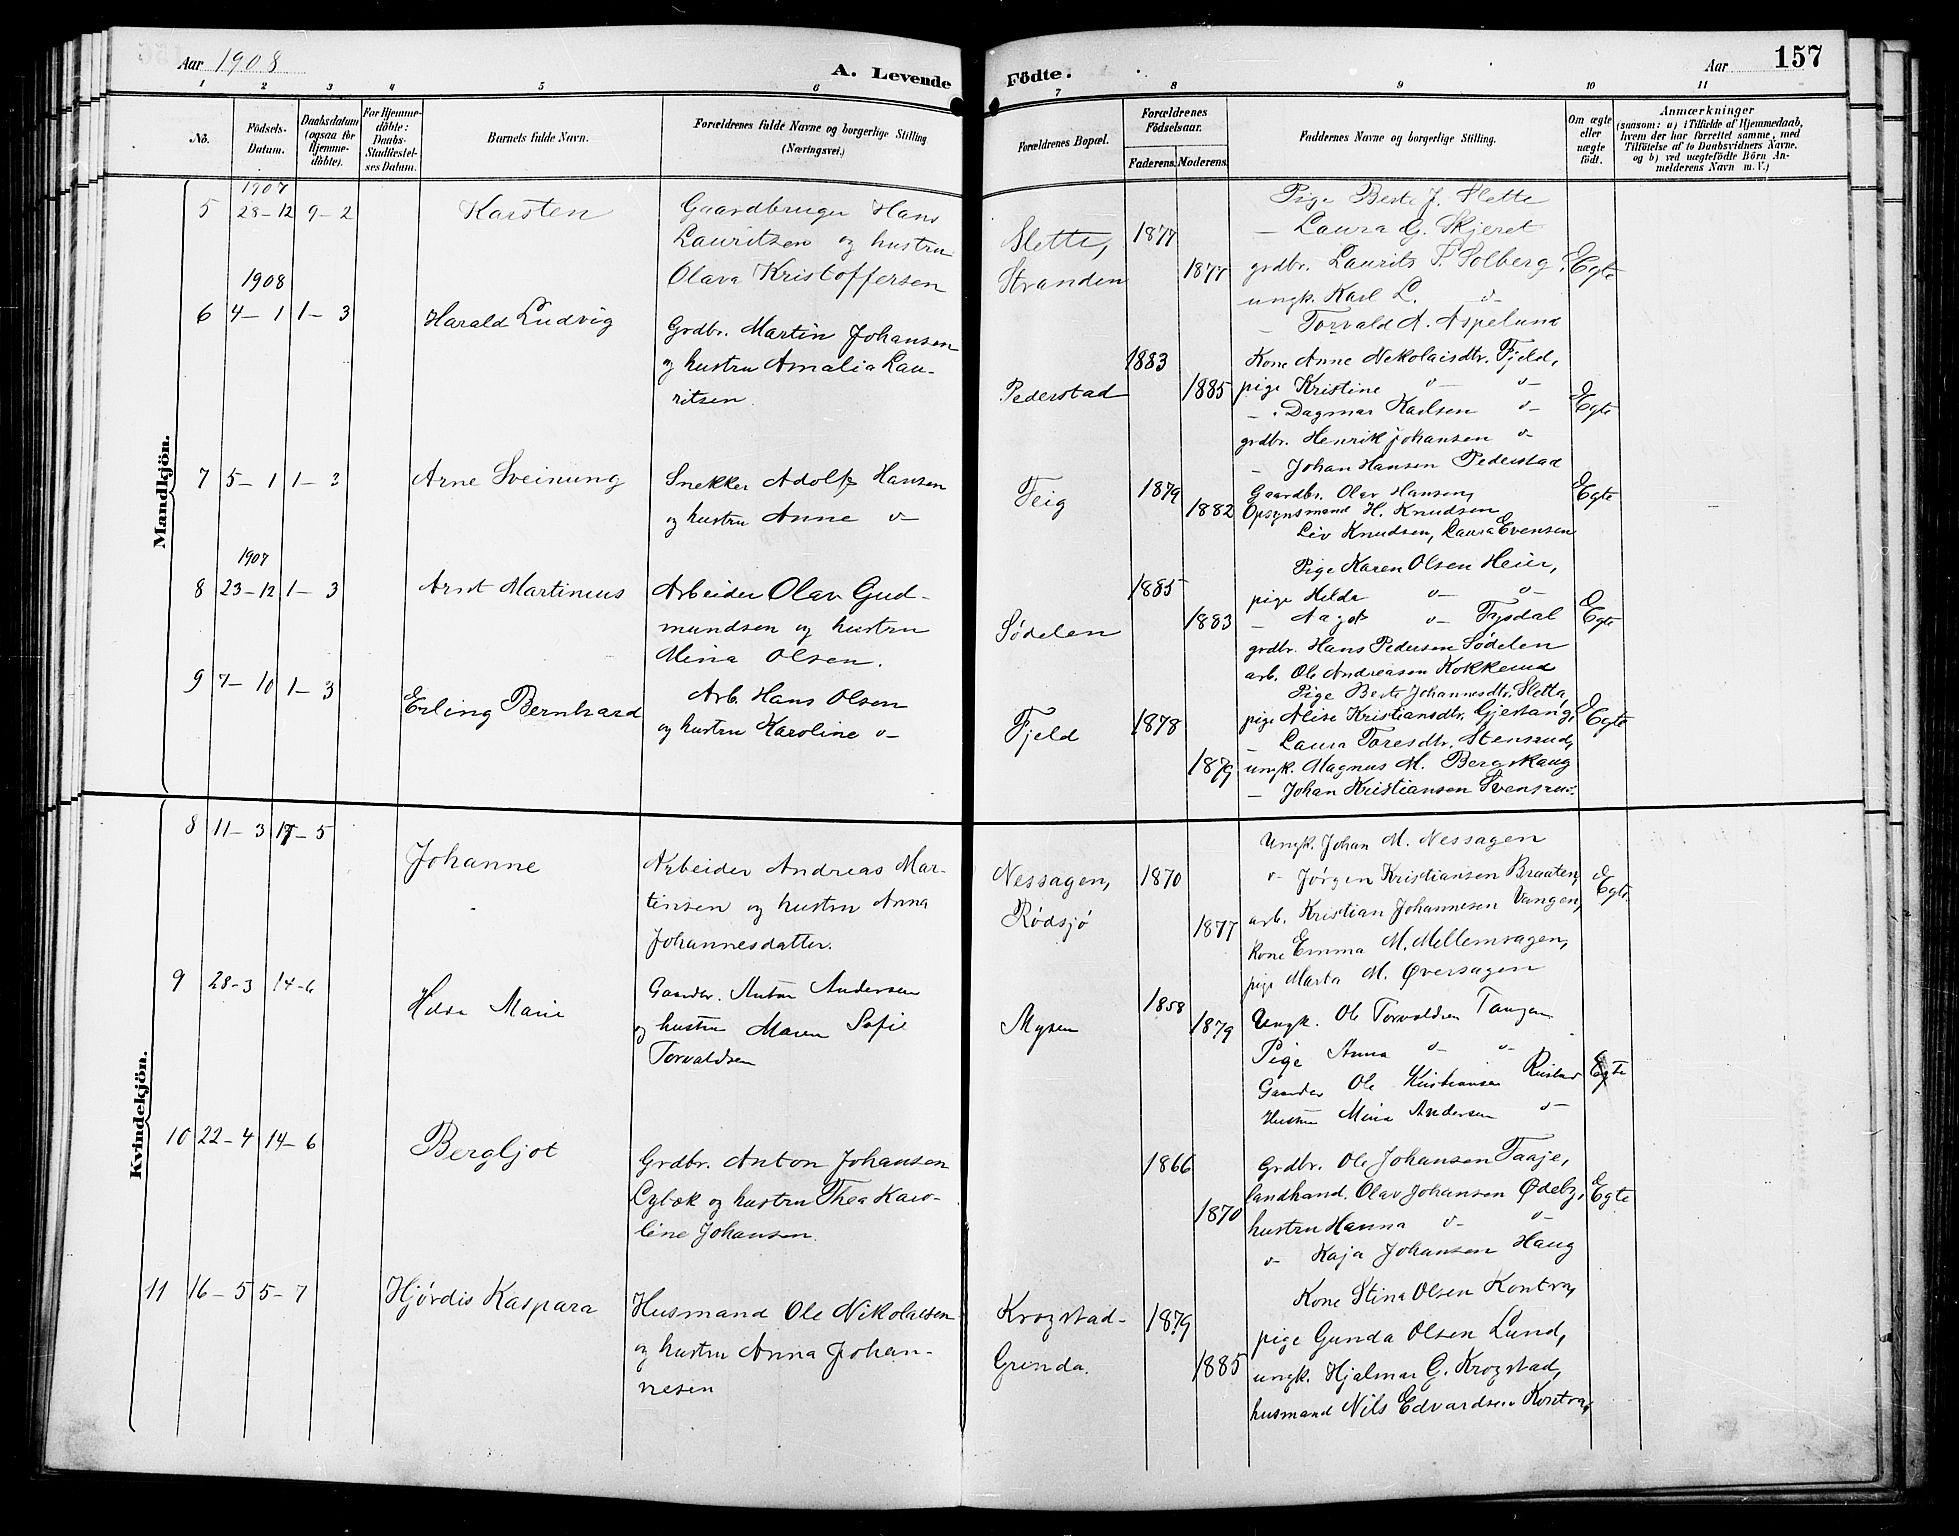 Aar 1908
A. Levende
Födte.
Aar
157
1 2 3 4 5 6 7 8 9 10 11
No.
Födsels-
Datum.
Daabsdatum
(ogsaa for
Hjemme-
döbte).
For Hjemme-
döbte:
Daabs-
Stadfæstel-
ses Datum.
Barnets fulde Navn.
Forældrenes fulde Navne og borgerlige Stilling
(Næringsvei.)
Forældrenes Bopæl.
Forældrenes
Födselsaar.
Faderens. Moderens.
Faddernes Navne og borgerlige Stilling.
Om ægte
eller
uægte
födt.
Anmærkninger
(saasom: a) i Tilfælde af Hjemmedaab,
hvem der har forrettet samme, med
Tilföielse af to Daabsvidners Navne,
og b) ved uægtefödte Börn An-
melderens Navn m. V.)
Mandkjön.
1907
5 28-12 9-2 Karsten
Gaardbruger Hans
Lauritsen og hustru
Olava Kristoffersen
Slette,
Stranden
1877
1877
Pige Berte J. Slette
— Laura G. Skjeret
grdbr. Laurits P. Solberg,
ungk. Karl L. o-
— Torvald A. Aspelund
Egte
1908
6 4-1 1-3 Harald Ludvig
Grdbr. Martin Johansen
og hustru Amalia Lau-
ritsen
Pederstad
1883
1885
Kone Anne Nekolaisdtr. Fjeld,
pige Kristine o- o-
— Dagmar Karlsen o-
grdbr. Henrik Johansen o-
— Johan Hansen Pederstad
Egte
7 5-1 1-3 Arne Sveinung
Snekker Adolf Hansen
og hustru Anne o-
Teig
1879
1882
Gaardbr. Olav Hansen,
Opsynsmand H. Knudsen
Liv Knudsen, Laura Evensen
Egte
1907
8 23-12 1-3 Arnt Martinius
Arbeider Olav Gud-
mundsen og hustru
Mina Olsen.
Södelen
1885
1883
Pige Karen Olsen Heier,
pige Helda o- o-
— Aagot o- Tysdal
grdbr. Hans Pedersen Södelen
arb. Ole Andreasen Kokkerud
Egte
9 7-10 1-3 Erling Bernhard
Arb. Hans Olsen
og hustru Karoline o-
Fjeld
1878
1879
Pige Berte Johannesdtr. Sletta,
pige Alise Kristiansdtr. Gjestang,
— Laura Toresdtr. Stensrud,
ungk. Magnus M. Bergskaug
— Johan Kristiansen Svensrud.
Egte
Kvindekjön.
8 11-3 17-5 Johanne
Arbeider Andreas Mar-
tinsen og hustru Anna
Johannesdatter.
Nessagen,
Rødsjø
1870
1877
Ungk. Johan M. Nessagen
o- Jørgen Kristiansen Braaten,
arb. Kristian Johannesen Vangen,
kone Emma M. Mellemsagen,
pige Marta M. Øversagen
Egte.
9 28-3 14-6 Hilda Marie
Gaardbr. Anton Andersen
og hustru Maren Sofie
Torvaldsen
Mysen
1858
1879
Ungk. Ole Torvaldsen Tangen
Pige Anna o- o-
Gaardbr Ole Kristiansen Rustad
Hustru Mina Andersen o-
Egte
10 22-4 14-6 Bergljot
Grdbr. Anton Johansen
Lybæk og hustru Thea Karo-
line Johansen.
1866
1870
Grdbr. Ole Johansen Taaje,
landhand. Olav Johansen Ødeby,
hustru Hanna o- o-
o- Kaja Johansen Haug
Egte
11 16-5 5-7 Hjördis Kaspara
Husmand Ole Nikolaisen
og hustru Anna Johan-
nesen
Krogstad-
Grinda.
1879
1885
Kone Stina Olsen Kontra,
pige Gunda Olsen Lund,
ungk. Hjalmar G. Krogstad,
husmand Nils Edvardsen Kontra,